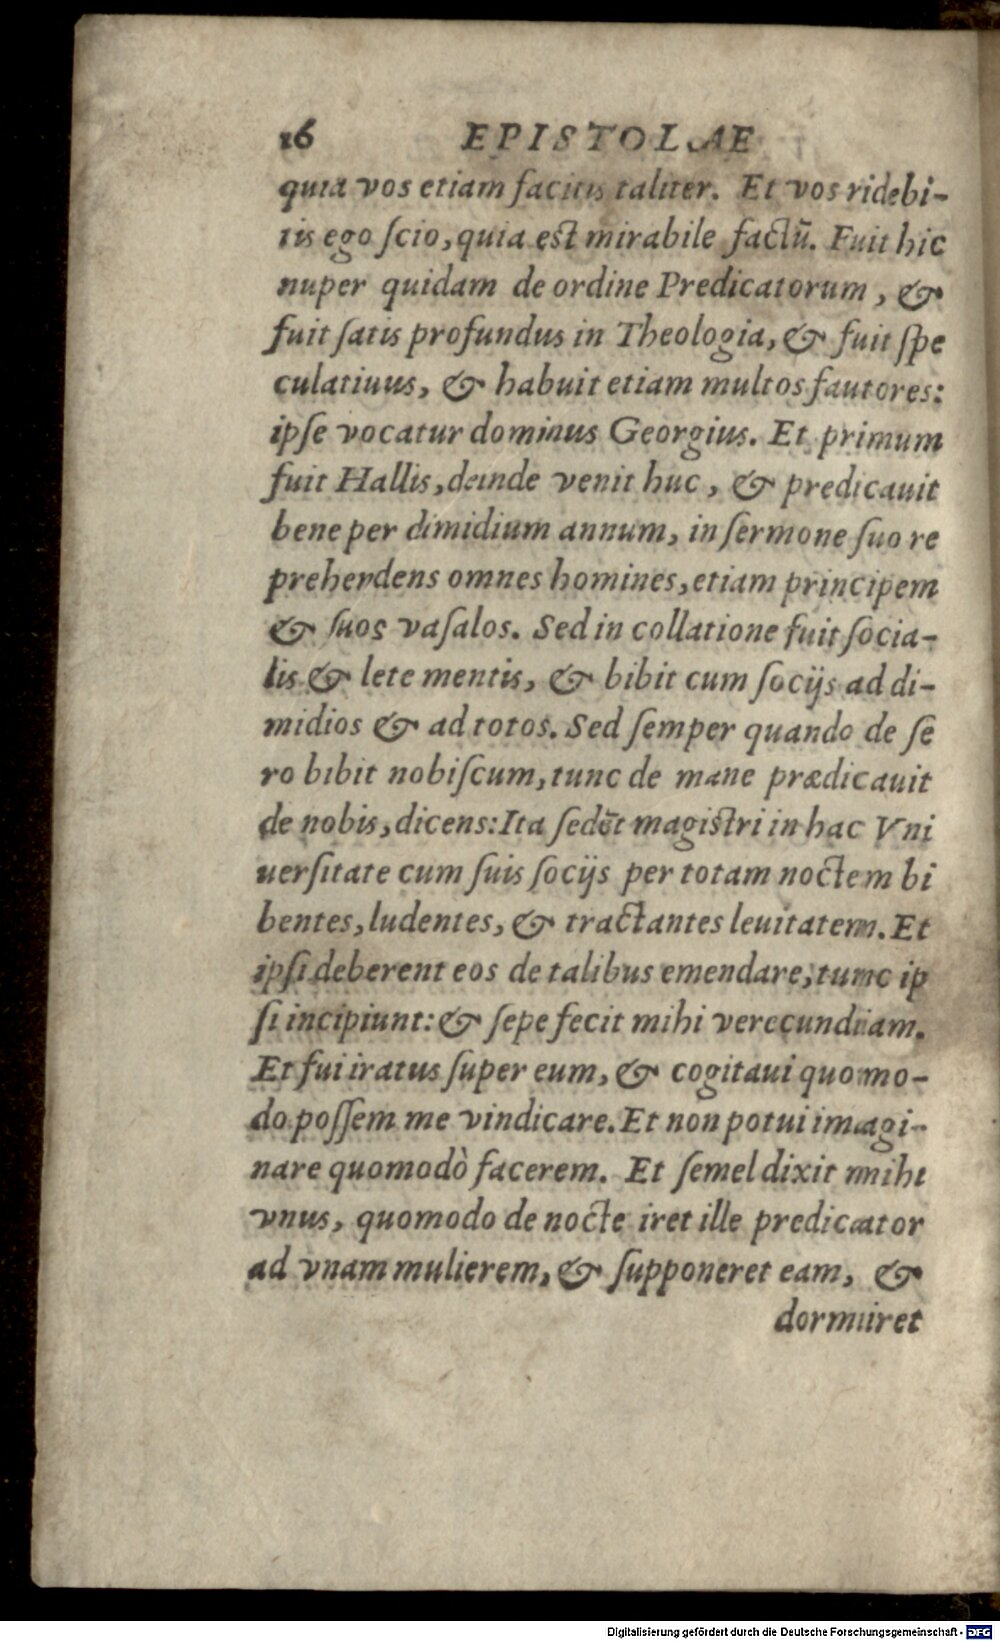 16 EPISTOLAE
quia vos etiam facitis taliter. Et vos ridebi-
tis ego ſcio, quia est mirabile factū. Fuit hic
nuper quidam de ordine Predicatorum, &
fuit ſatis profundus in Theologia, & fuit ſpe
culatiuus, & habuit etiam multos fautores:
ipſe vocatur dominus Georgius. Et primum
fuit Hallis, deinde venit huc, & predicauit
bene per dimidium annum, in ſermone ſuo re
prehendens omnes homines, etiam principem
& ſuos vaſalos. Sed in collatione fuit ſocia-
lis & lete mentis, & bibit cum ſocijs ad di-
midios & ad totos. Sed ſemper quando de ſe
ro bibit nobiſcum, tunc de mane prædicauit
de nobis, dicens: Ita ſedēt magistri in hac Vni
uerſitate cum ſuis ſocijs per totam noctem bi
bentes, ludentes, & tractantes leuitatem. Et
ipſi deberent eos de talibus emendare, tunc ip
ſi incipiunt: & ſepe fecit mihi verecundiam.
Et fui iratus ſuper eum, & cogitaui quomo-
do poſſem me vindicare. Et non potui imagi-
nare quomodò facerem. Et ſemel dixit mihi
vnus, quomodo de nocte iret ille predicator
ad vnam mulierem, & ſupponeret eam, &
dormiret
Digitalisierung gefördert durch die Deutsche Forschungsgemeinschaft - DFG